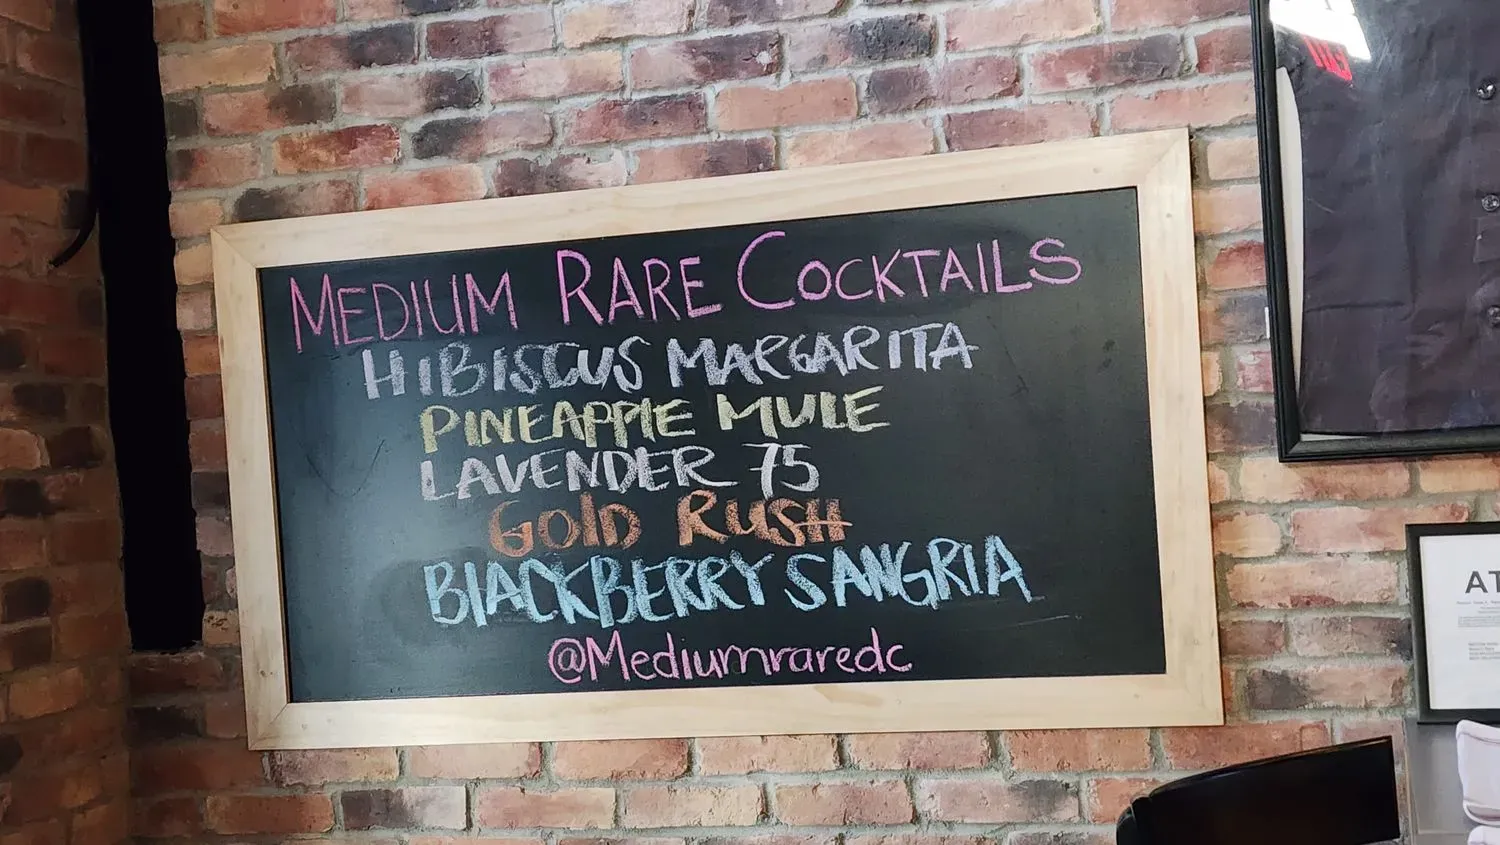 MEDIUM RARE COCKTAILS
HIBISCUS MARGARITA
PINEAPPLE MULE
LAVENDER 75
GOLD RUSH
BLACKBERRY SANGRIA
@Mediumraredc
AT